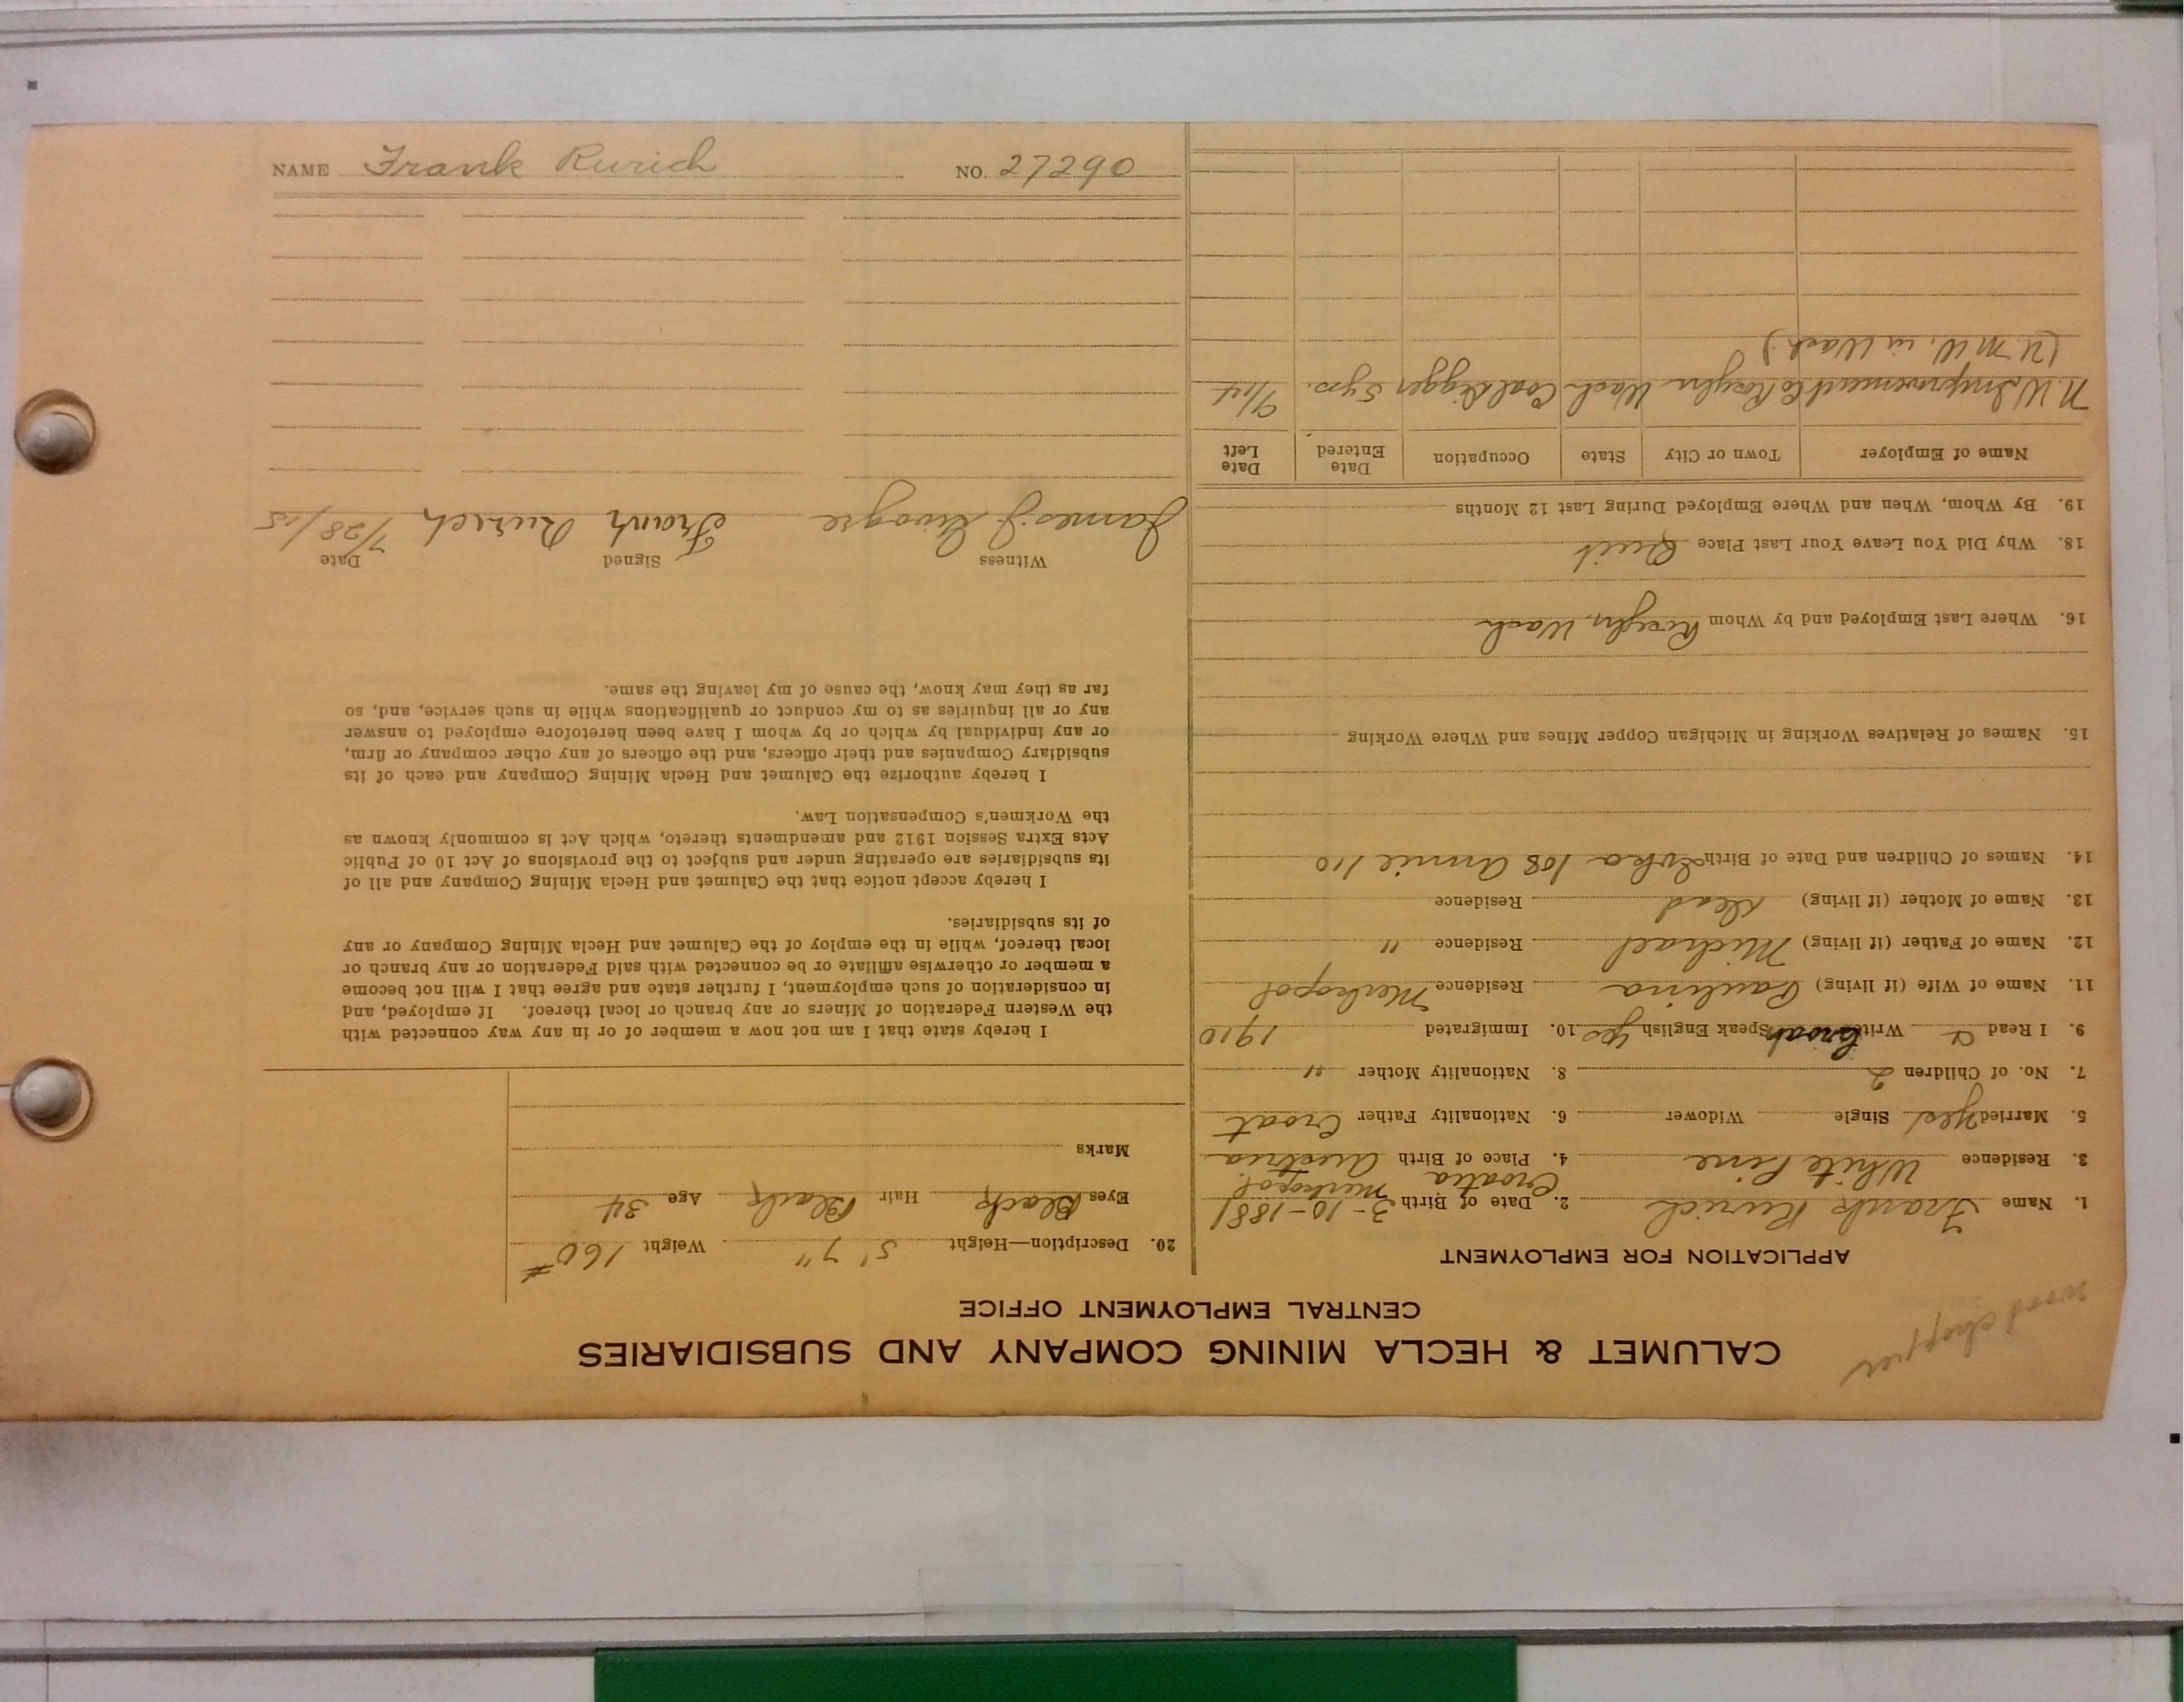 NAME Frank Rurich NO. 27290
wood chopper
CALUMET & HECLA MINING COMPANY AND SUBSIDIARIES
CENTRAL EMPLOYMENT OFFICE
APPLICATION FOR EMPLOYMENT
1. Name Frank Rurich 2. Date of Birth 3-10-1881
Croatia Merkopol
3. Residence White Pine 4. Place of Birth Austria
5. Married Yes Single Widower 6. Nationality Father Croat
7. No. of Children 2 8. Nationality Mother "
9. I Read & Write Croat Speak English Yes 10. Immigrated 1910
11. Name of Wife (if living) Paulina Residence Merkopol
12. Name of Father (if living) Michael Residence "
13. Name of Mother (if living) Dead Residence
14. Names of Children and Date of Birth 108 Annie 110
15. Names of Relatives Working in Michigan Copper Mines and Where Working
16. Where Last Employed and by Whom Roslyn, Wash
18. Why Did You Leave Your Last Place Quit
19. By Whom, When and Where Employed During Last 12 Months
Name of Employer Town or City State Occupation Date Entered Date Left
N.W. Improvement Co Roslyn Wash Coal digger 5 yrs. 9/14
(U M W. in Wash)
20. Description—Height 5' 7" Weight 160 #
Eyes Black Hair Black Age 34
Marks
I hereby state that I am not now a member of or in any way connected with
the Western Federation of Miners or any branch or local thereof. If employed, and
in consideration of such employment, I further state and agree that I will not become
a member or otherwise affiliate or be connected with said Federation or any branch or
local thereof, while in the employ of the Calumet and Hecla Mining Company or any
of its subsidiaries.
I hereby accept notice that the Calumet and Hecla Mining Company and all of
its subsidiaries are operating under and subject to the provisions of Act 10 of Public
Acts Extra Session 1912 and amendments thereto, which Act is commonly known as
the Workmen's Compensation Law.
I hereby authorize the Calumet and Hecla Mining Company and each of its
subsidiary Companies and their officers, and the officers of any other company or firm,
or any individual by which or by whom I have been heretofore employed to answer
any or all inquiries as to my conduct or qualifications while in such service, and, so
far as they may know, the cause of my leaving the same.
Witness Signed Date
James J. Frank Rurich 7/28/15